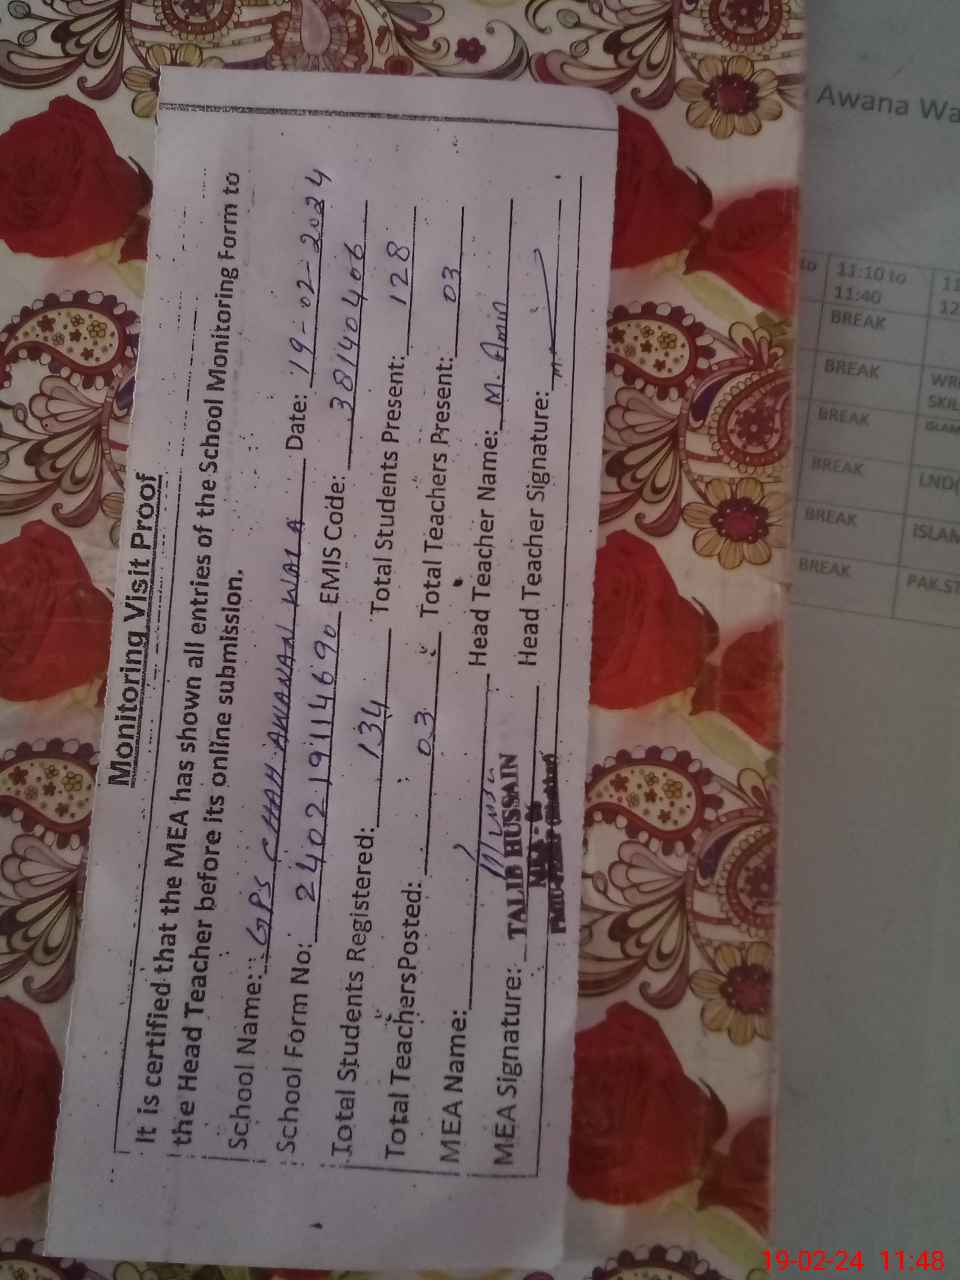 Monitoring Visit Proof
It is certified that the MEA has shown all entries of the School Monitoring Form to
the Head Teacher before its online submission.
School Name: GPS CHAH AWANAN WALA Date: 19-02-2024
School Form No: 24021911 4690 EMIS Code: 38140406
Total Students Registered: 134 Total Students Present: 128
Total Teachers Posted: 03 Total Teachers Present: 03
MEA Name: Head Teacher Name: M. Amin
MEA Signature: Head Teacher Signature:
TALIB HUSSAIN
Awana Wa
to 11:10 to 11:40
BREAK
BREAK WR SKIL
BREAK ISLAM
BREAK LND(
BREAK ISLAM
BREAK PAK.ST
19-02-24 11:48